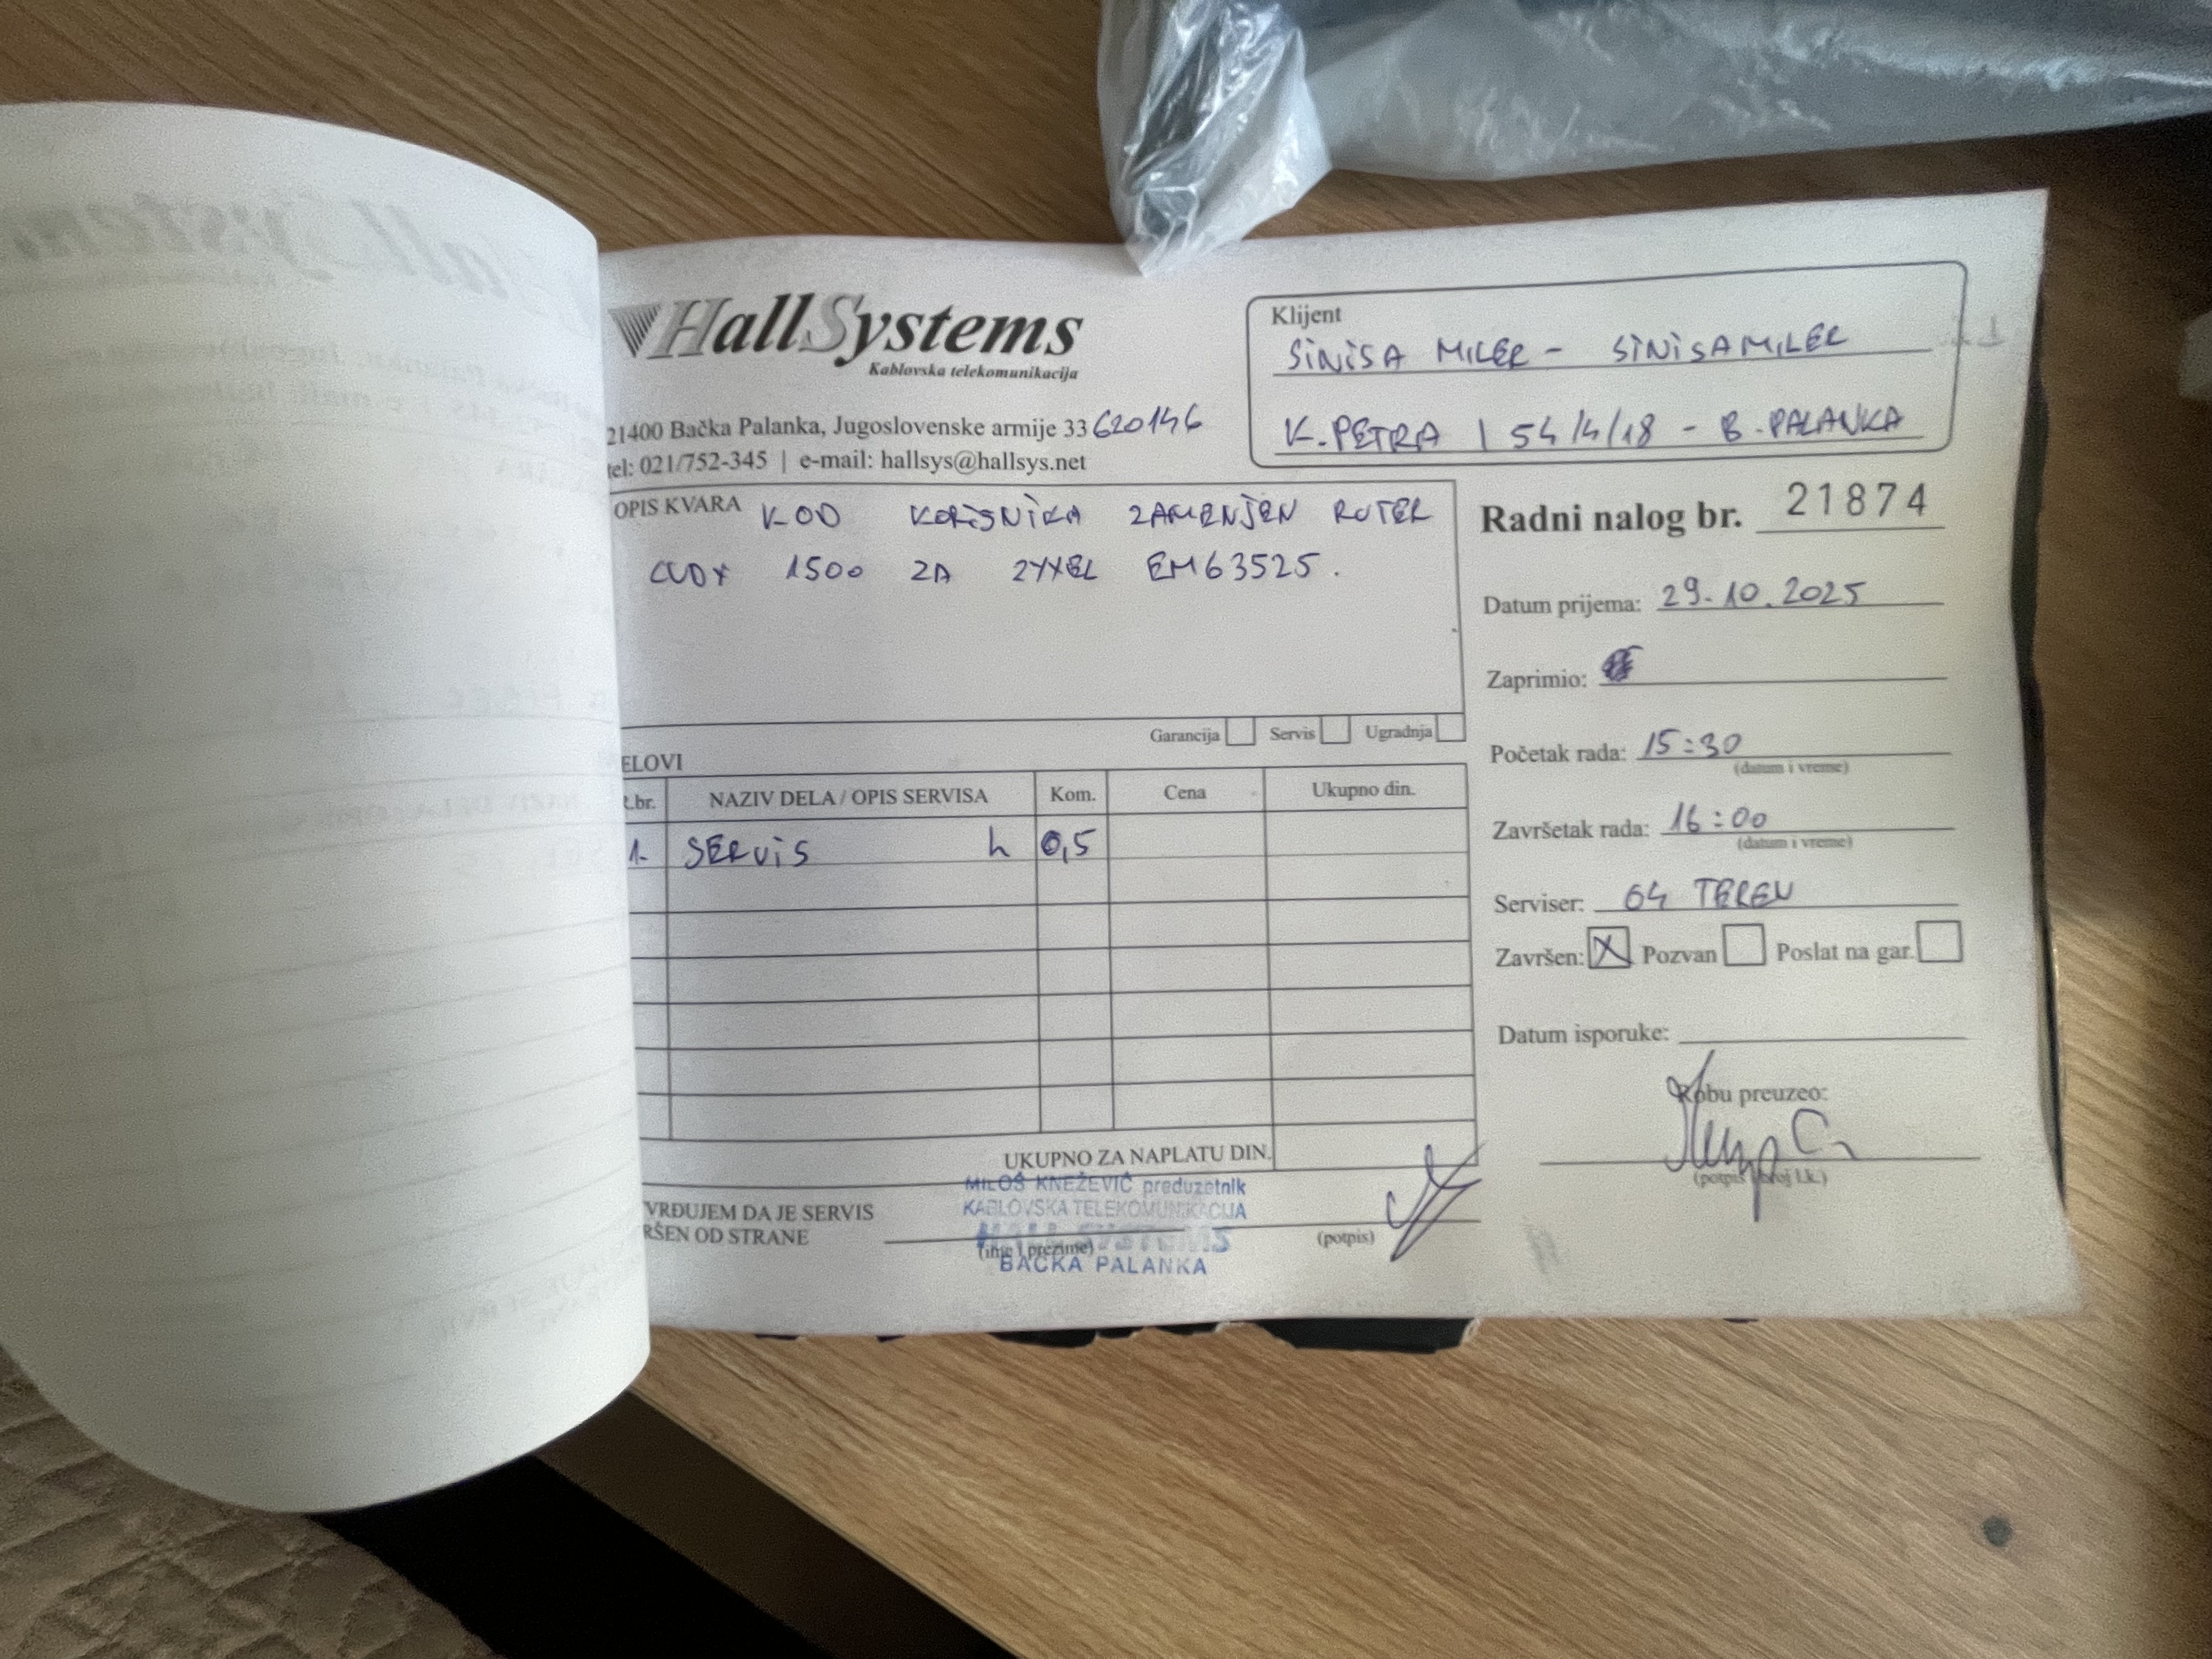 HallSystems
Kablovska telekomunikacija
21400 Bačka Palanka, Jugoslovenske armije 33 620146
tel: 021/752-345 | e-mail: hallsys@hallsys.net
Klijent
SINISA MILER - SINISAMILER
K. PETRA I 54/4/18 - B. PALANKA
OPIS KVARA KOD KORISNIKA ZAMENJEN RUTER
1500 ZA ZYXEL EM63525.
Garancija Servis Ugradnja
Radni nalog br. 21874
Datum prijema: 29.10.2025
Zaprimio:
Početak rada: 15:30
(datum i vreme)
Završetak rada: 16:00
(datum i vreme)
Serviser: 64 TEREN
Završen: X Pozvan Poslat na gar.
Datum isporuke:
Robu preuzeo:
(potpis i broj l.k.)
ELOVI
.br. NAZIV DELA / OPIS SERVISA Kom. Cena Ukupno din.
1. SERVIS h 0,5
UKUPNO ZA NAPLATU DIN.
VRĐUJEM DA JE SERVIS
RŠEN OD STRANE
(ime i prezime)
(potpis)
MILOŠ KNEŽEVIĆ preduzetnik
KABLOVSKA TELEKOMUNIKACIJA
HALL SYSTEMS
BAČKA PALANKA